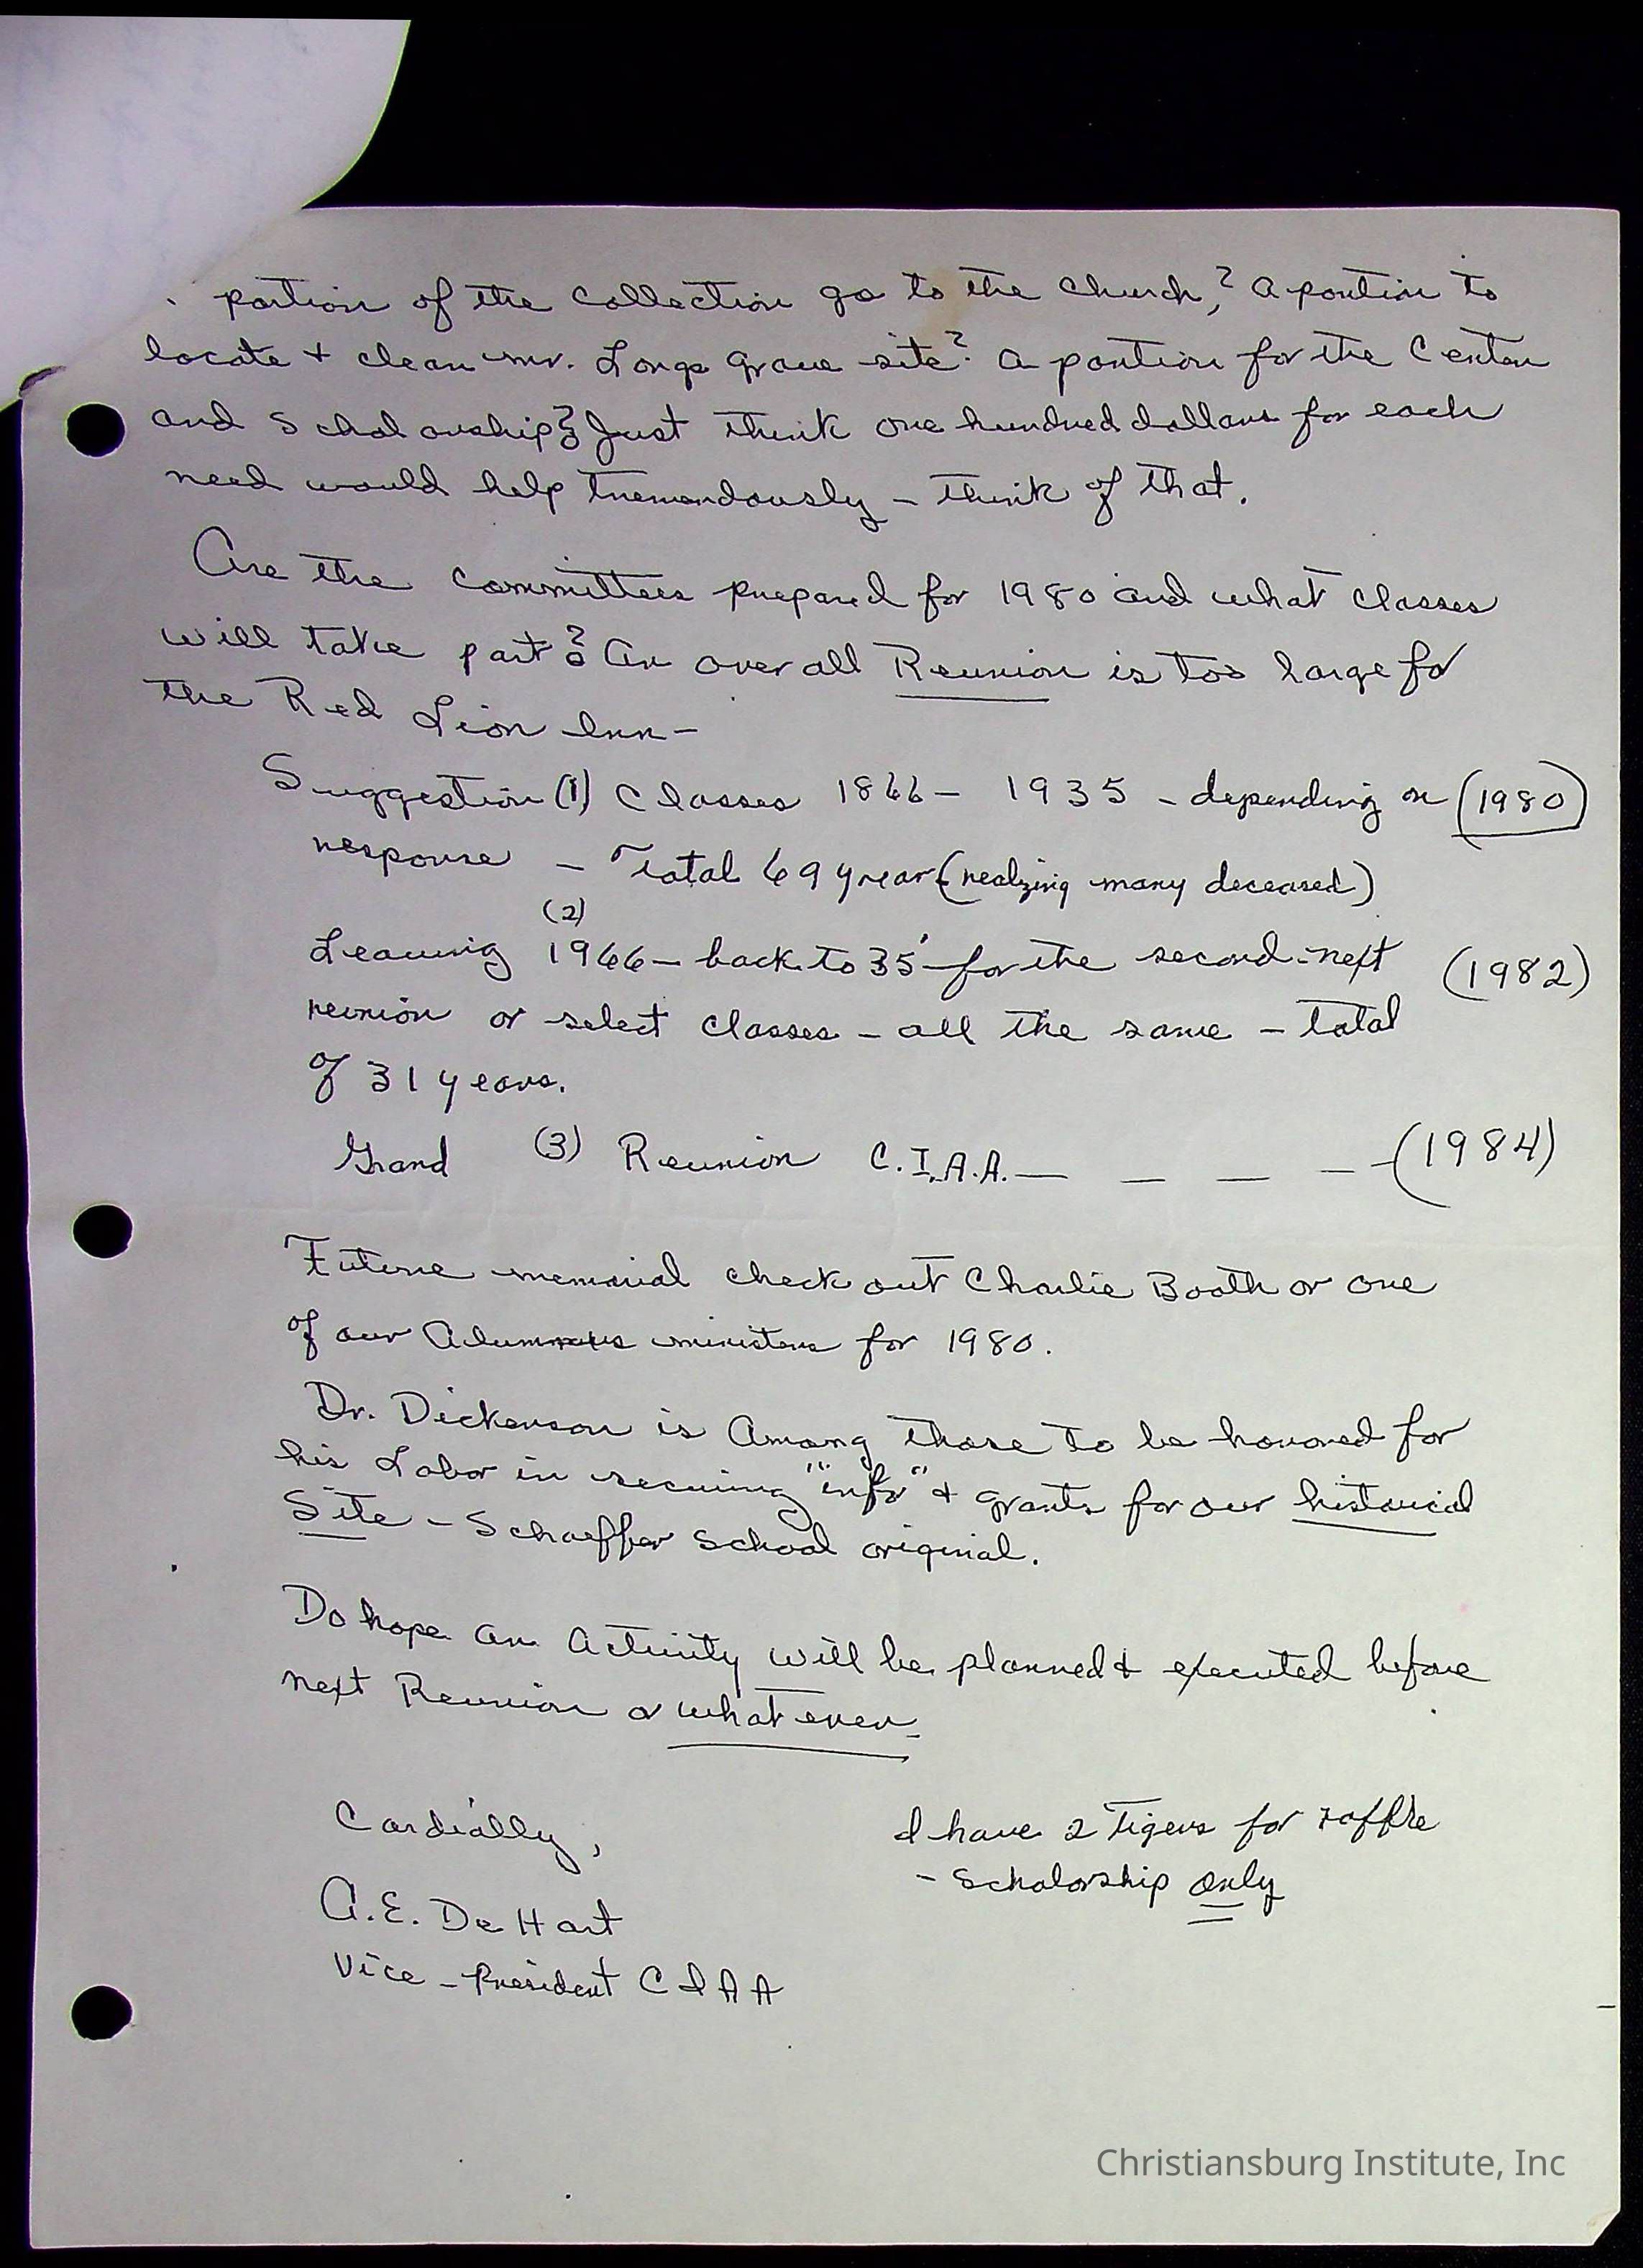 portion of the collection go to the Church,? A portion to
locate + clean mr. Longs grave site? A portion for the Center
and Scholarship? Just think one hundred dollars for each
need would help tremendously - think of that.
Are the Committees prepared for 1980 and what classes
will take part? An over all Reunion is too large for
the Red Lion Inn-
Suggestion (1) Classes 1866 - 1935 - depending on (1980)
response - Total 69 years (realizing many deceased)
(2)
Leaving 1966 - back to 35' for the second - next (1982)
reunion or select classes - all the same - total
of 31 years.
Grand (3) Reunion C.I.A.A. — — — — (1984)
Future memorial check out Charlie Booth or one
of our Alumnus ministers for 1980.
Dr. Dickerson is Among those to be honored for
his Labor in securing "info" + grants for our historical
Site - Schaeffer School original.
Do hope an Activity will be planned + executed before
next Reunion or what ever-
Cordially,
I have 2 Tigers for raffle
- Scholarship only
A.E. De Hart
Vice - President CIAA
Christiansburg Institute, Inc